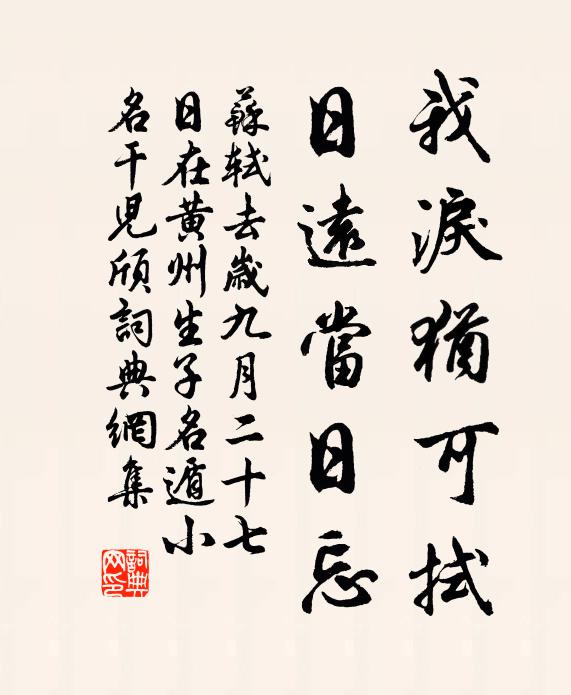 我淚猶可拭
日遠當日忘
蘇軾去歲九月二十七
日在黃州生子名遁小
名干兒頎詞典網集
詞典网印